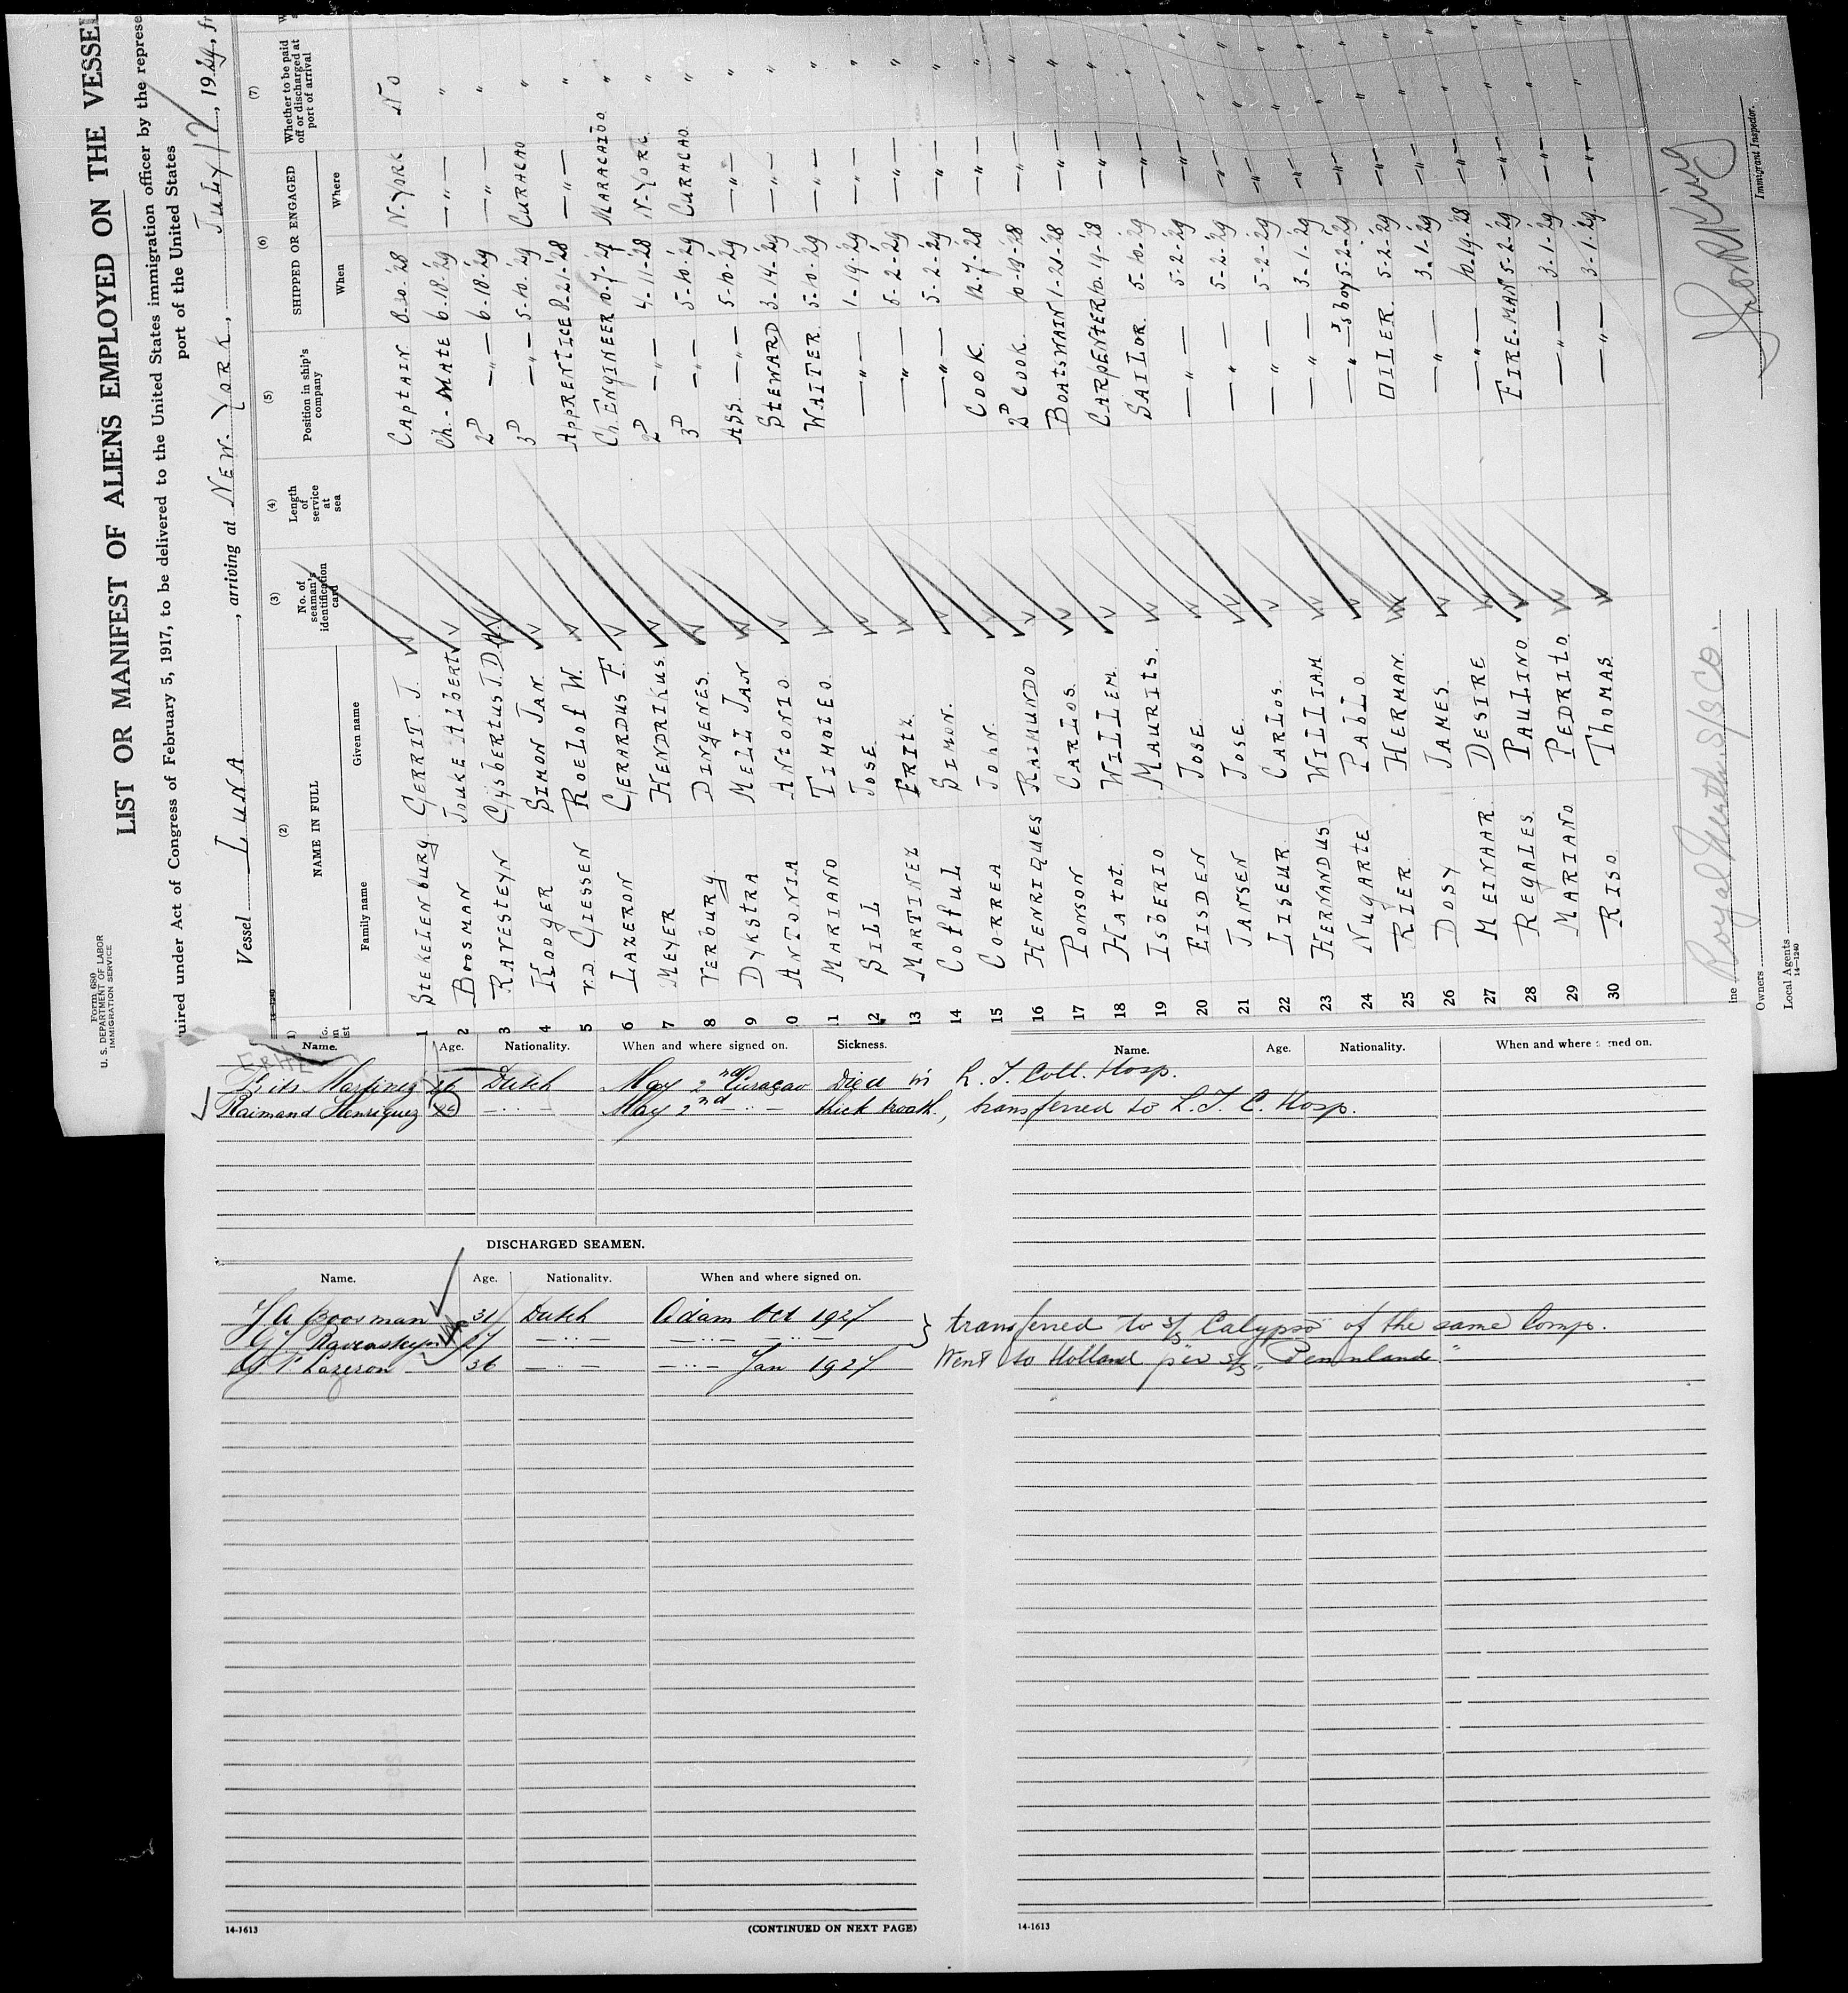 Form 680
U. S. DEPARTMENT OF LABOR
IMMIGRATION SERVICE
LIST OR MANIFEST OF ALIENS EMPLOYED ON THE VESSEL
uired under Act of Congress of February 5, 1917, to be delivered to the United States immigration officer by the represe
port of the United States
Vessel LUNA, arriving at NEW-YORK, July 17, 1929, fr
(2) (3) (4) (5) (6) (7)
NAME IN FULL No. of seaman's identification card Length of service at sea Position in ship's company SHIPPED OR ENGAGED Whether to be paid off or discharged at port of arrival
Family name Given name When Where
1 STEKELENBURG GERRIT J. CAPTAIN 8-30-'28 N-YORK NO
2 BOOSMAN JOUKE ALBERT Ch. MATE 6-18-'29 —"— "
3 RAVESTEYN GYSBERTUS J.D. 2D —"— 6-18-'29 —"— "
4 KOOGER SIMON JAN 3D —"— 5-10-'29 CURACAO "
5 V.D. GIESSEN ROELOF W. APPRENTICE 8-21-'28 —"— "
6 LAZERON GERARDUS F. Ch. ENGINEER 10-7-'27 MARACAIBO "
7 MEYER HENDRIKUS 2D —"— 4-11-'28 N-YORK "
8 VERBURG DINGENES. 3D —"— 5-10-'29 CURACAO "
9 DYKSTRA MELL JAN ASS. —"— 5-10-'29 —"— "
0 ANTONIA ANTONIO STEWARD 3-14-'29 —"— "
11 MARIANO TIMOLEO WAITER 5-10-'29 —"— "
12 SILL JOSE —"— 1-19-'29 —"— "
13 MARTINEZ FRITZ —"— 5-2-'29 —"— "
14 COFFUL SIMON. —"— 5-2-'29 —"— "
15 CORREA JOHN. COOK. 12-7-'28 —"— "
16 HENRIQUES RAIMUNDO 2D COOK. 10-19-'28 —"— "
17 PONSON CARLOS. BOATSWAIN 1-21-'28 —"— "
18 HATOT. WILLEM. CARPENTER 10-19-'28 —"— "
19 ISBERIO MAURITS. SAILOR. 5-10-'29 —"— "
20 EISDEN JOSE. —"— 5-2-'29 —"— "
21 JANSEN JOSE. —"— 5-2-'29 —"— "
22 LISEUR. CARLOS. —"— 5-2-'29 —"— "
23 HERNANDUS. WILLIAM. —"— 3-1-'29 —"— "
24 NUGARTE PABLO. —"—'s boy 5-2-'29 —"— "
25 RIER. HERMAN. OILER. 5-2-'29 —"— "
26 DOSY JAMES. —"— 3-1-'29 —"— "
27 MEINAAR. DESIRE —"— 10-19-'28 —"— "
28 REGALES. PAULINO FIRE-MAN 5-2-'29 —"— "
29 MARIANO. PEDRITO. —"— 3-1-'29 —"— "
30 RISO. THOMAS. —"— 3-1-'29 —"— "
ine Royal Neth. S/S CO.
Owners
Local Agents
14—1240
King
Immigrant Inspector.
Name. Age. Nationality. When and where signed on. Sickness. Name. Age. Nationality. When and where ned on.
FRITZ
Frits Martinez 26 Dutch May 2nd Curaçao Died in L. I. Coll. Hosp.
Raimand Henriquez —"— May 2nd —"— thick mouth, transferred to L. I. C. Hosp.
DISCHARGED SEAMEN.
Name. Age. Nationality. When and where signed on.
J A Boosman 31 Dutch Adam Oct 1927
G J Ravensteyn 27 —"— —"— —"— } transferred to s/s Calypso of the same Comp.
G F Lazeron 36 —"— —"— Jan 1927 Went to Holland per s/s "Pennland"
14-1613 (CONTINUED ON NEXT PAGE) 14-1613